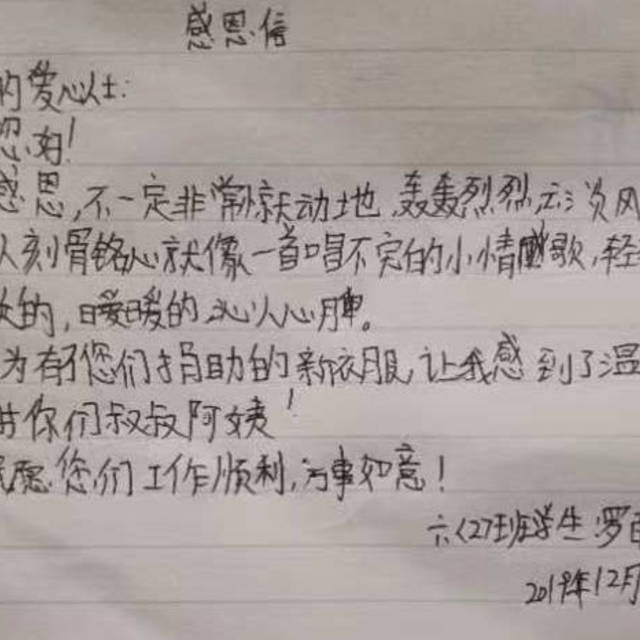 感恩信
的爱心人士:
您好!
感恩,不一定非常惊天动地,轰轰烈烈,云淡风
人刻骨铭心就像一首唱不完的小情歌,轻
快的,暖暖的沁人心脾。
为有了您们捐助的新衣服,让我感到了温
谢你们叔叔阿姨!
祝愿您们工作顺利,万事如意!
六(2)班学生:罗
2019年12月